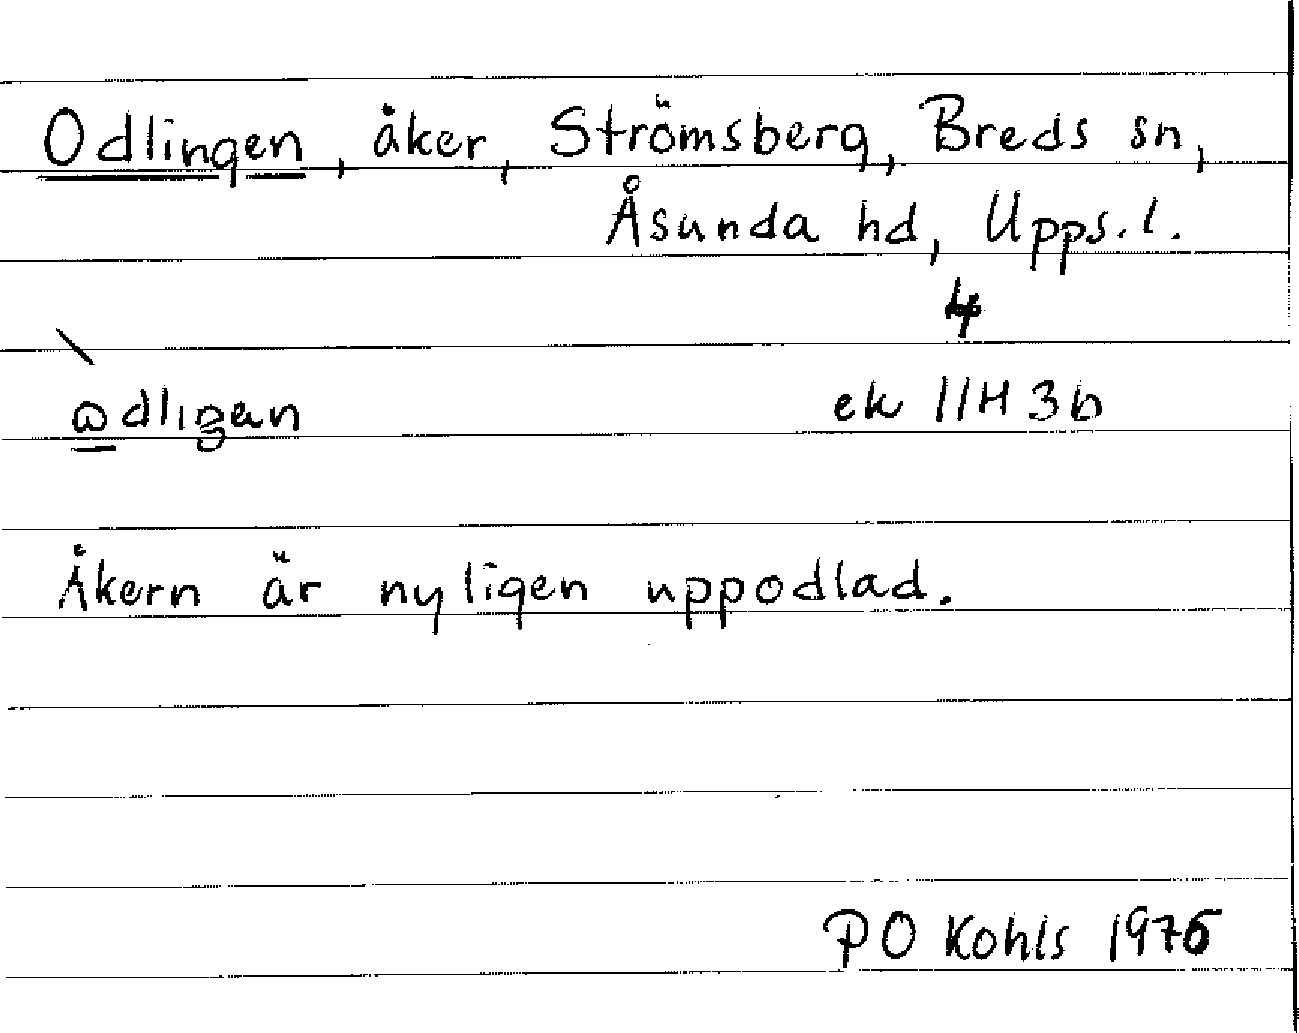 Odlingen, åker, Strömsberg, Breds sn,
Åsunda hd, Upps. l.
ek 11H 3b
Åkern är nyligen uppodlad.
PO Kohls 1976